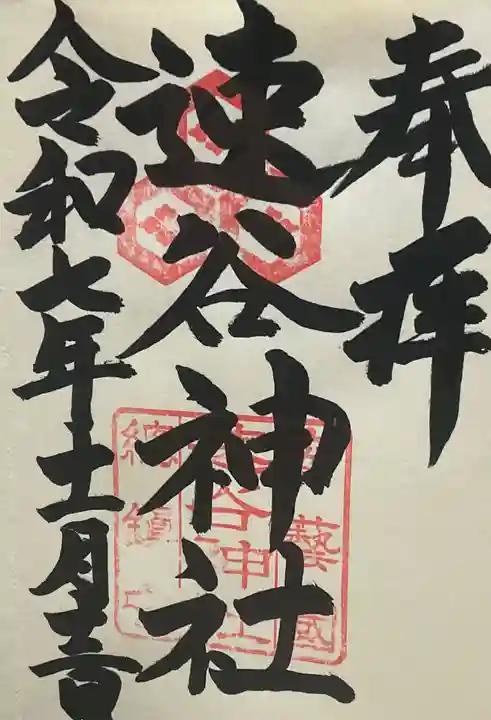 奉拝
速谷神社
令和七年十一月吉日
安藝國
速谷神社
總鎮守